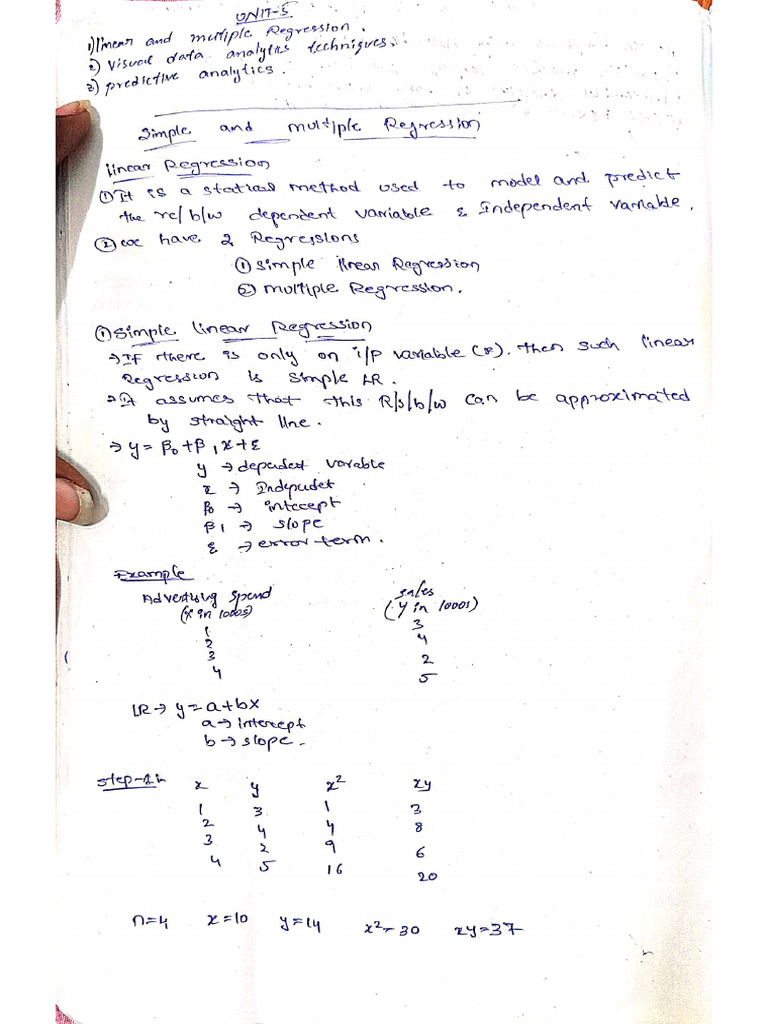 UNIT-5
1) linear and multiple Regression.
2) visual data analytics techniques.
3) predictive analytics.
Simple and multiple Regression
linear Regression
① It is a statical method used to model and predict
the re/b/w dependent variable & Independent variable.
② we have 2 Regressions
① simple linear Regression
② multiple Regression.
① Simple linear Regression
→ If there is only on i/p variable (x). then such linear
Regression is simple LR.
→ It assumes that this R/s/b/w can be approximated
by straight line.
→ y = β0 + β1x + ε
y → dependent variable
x → Indepudet
β0 → intecept
β1 → slope
ε → error term.
Example
Advertising spend sales
(x in 1000s) (y in 1000s)
1 3
2 4
3 2
4 5
LR → y = a + bx
a → intercept
b → slope.
step-1: x y x² xy
1 3 1 3
2 4 4 8
3 2 9 6
4 5 16 20
n=4 x=10 y=14 x²=30 xy=37